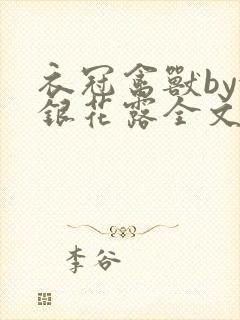 衣冠禽獸by
銀花露全文
李谷